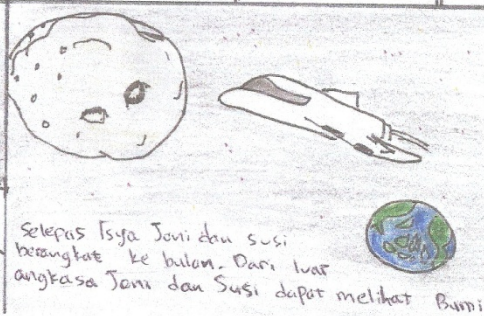 selepas Isya Joni dan susi
berangkat ke bulan. Dari luar
angkasa Joni dan Susi dapat melihat Bumi